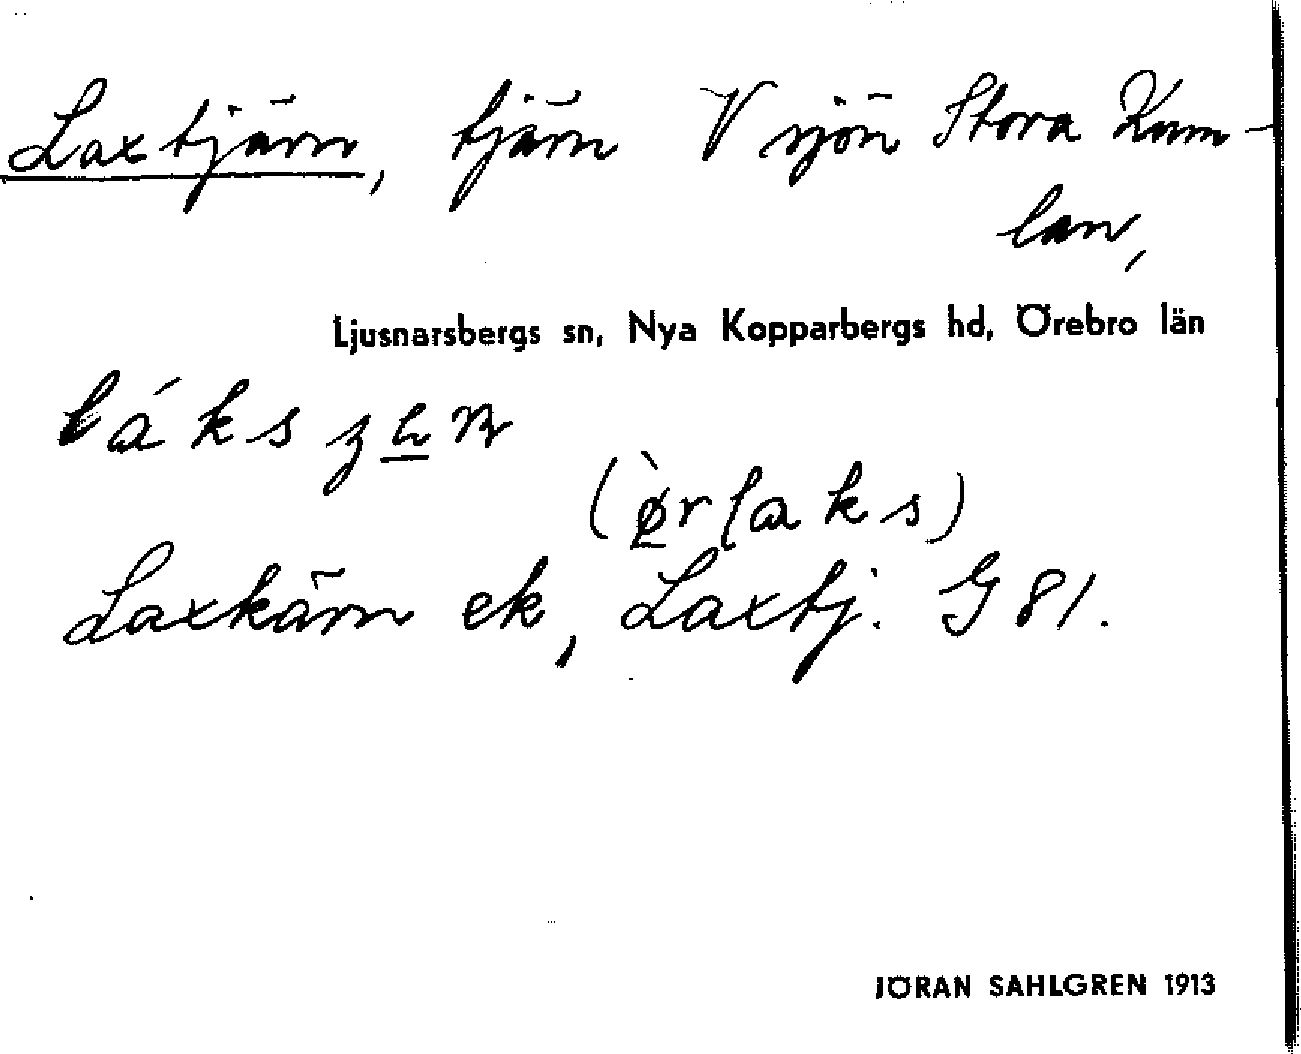 Laxtjärn, tjärn V sjön Stora Kum-
lan,
Ljusnarsbergs sn, Nya Kopparbergs hd, Örebro län
Laxkärn ek, Laxtj. G 81.
JÖRAN SAHLGREN 1913